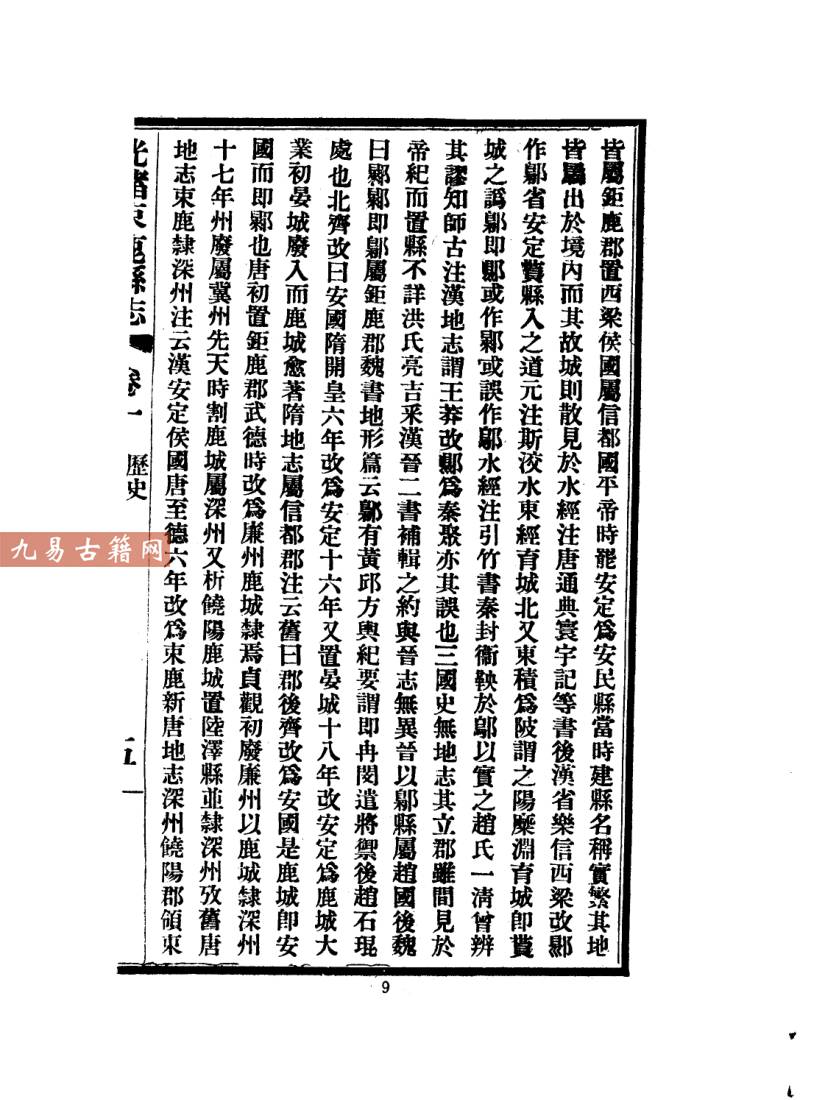 皆屬鉅鹿郡置西梁侯國屬信都國平帝時罷安定爲安民縣當時建縣名稱實繁其地
皆屬出於境內而其故城則散見於水經注唐通典寰宇記等書後漢省樂信西梁改鄡
作鄥省安定貰縣入之道元注斯洨水東經育城北又東積爲陂謂之陽縻淵育城卽貰
城之譌鄥卽鄡或作鄛或誤作鄔水經注引竹書秦封衞鞅於鄔以實之趙氏一清曾辨
其謬知師古注漢地志謂王莽改鄡爲秦聚亦其誤也三國史無地志其立郡雖間見於
帝紀而置縣不詳洪氏亮吉釆漢晉二書補輯之約與晉志無異晉以鄥縣屬趙國後魏
曰鄡鄡卽鄥屬鉅鹿郡魏書地形篇云鄥有黃邱方輿紀要謂卽冉閔遣將禦後趙石琨
處也北齊改曰安國隋開皇六年改爲安定十六年又置晏城十八年改安定爲鹿城大
業初晏城廢入而鹿城愈著隋地志屬信都郡注云舊曰郡後齊改爲安國是鹿城卽安
國而卽鄡也唐初置鉅鹿郡武德時改爲廉州鹿城隸焉貞觀初廢廉州以鹿城隸深州
十七年州廢屬冀州先天時割鹿城屬深州又析饒陽鹿城置陸澤縣並隸深州攷舊唐
地志束鹿隸深州注云漢安定侯國唐至德六年改爲束鹿新唐地志深州饒陽郡領束
光緖束鹿縣志 卷一 歷史 五
九易古籍网
9